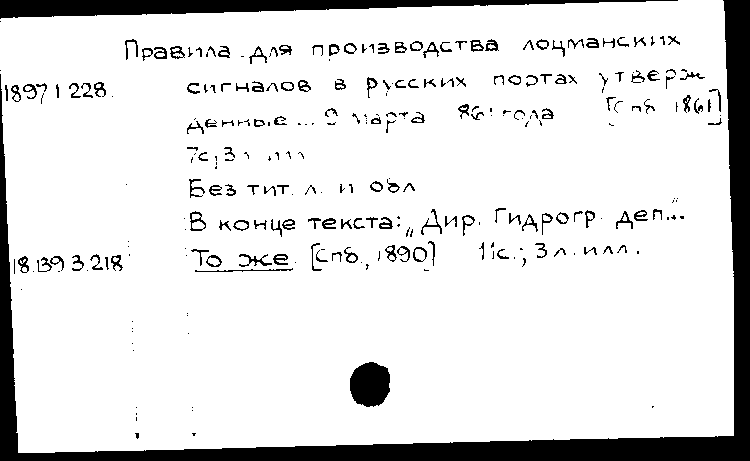 Правила для производства лоцманских
18971228. сигналов в русских портах утверж
денные... 9 марта 1861 года [Спб 1861]
7с, 3 л. илл
Без тит. л. и обл
В конце текста: „Дир. Гидрогр. деп..."
18.139 3.218 То же. [Спб., 1890] 11с.; 3 л. илл.